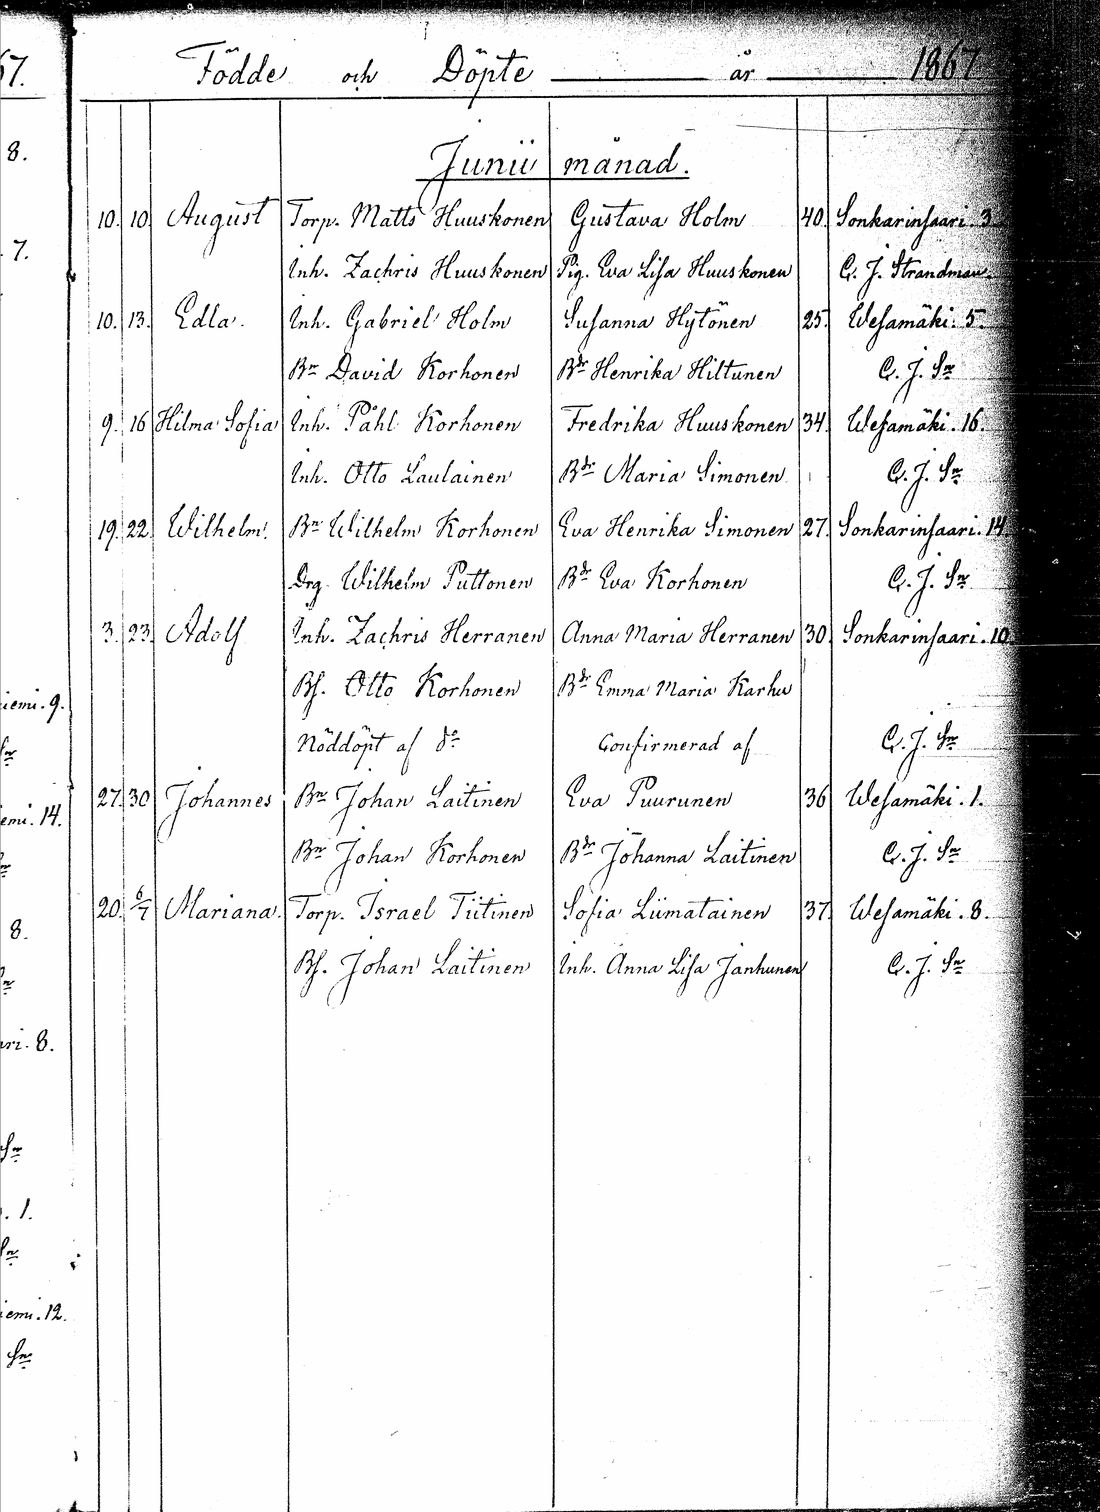 67.
Födde och Döpte år 1867
8.
Junii månad.
10. 10. August Torp. Matts Huuskonen Gustava Holm 40. Sonkarinsaari. 3.
7.
Inh. Zachris Huuskonen Pig. Eva Lisa Huuskonen C. J. Strandman.
10. 13. Edla. Inh. Gabriel Holm Susanna Hytönen 25. Wesamäki. 5.
Bn David Korhonen Bdr Henrika Hiltunen C. J. Sn
9. 16 Hilma Sofia Inh. Påhl Korhonen Fredrika Huuskonen 34. Wesamäki. 16.
Inh. Otto Laulainen Bdr Maria Simonen C. J. Sn
19. 22. Wilhelm. Bn Wilhelm Korhonen Eva Henrika Simonen 27. Sonkarinsaari. 14
Drg. Wilhelm Puttonen Bdr Eva Korhonen C. J. Sn
3. 23. Adolf Inh. Zachris Herranen Anna Maria Herranen 30. Sonkarinsaari. 10
Bs. Otto Korhonen Bdr Emma Maria Karhu
iemi. 9.
Nöddöpt af do Confirmerad af C. J. Sn
Sn
27. 30 Johannes Bn Johan Laitinen Eva Puurunen 36 Wesamäki. 1.
emi. 14.
Bn Johan Korhonen Bdr Johanna Laitinen C. J. Sn
20. 6/7 Mariana. Torp. Israel Tiitinen Sofia Liimatainen 37. Wesamäki. 8.
8.
Bs. Johan Laitinen Inh. Anna Lisa Janhunen C. J. Sn
ari. 8.
Sn
1.
Sn
iemi. 12.
Sn